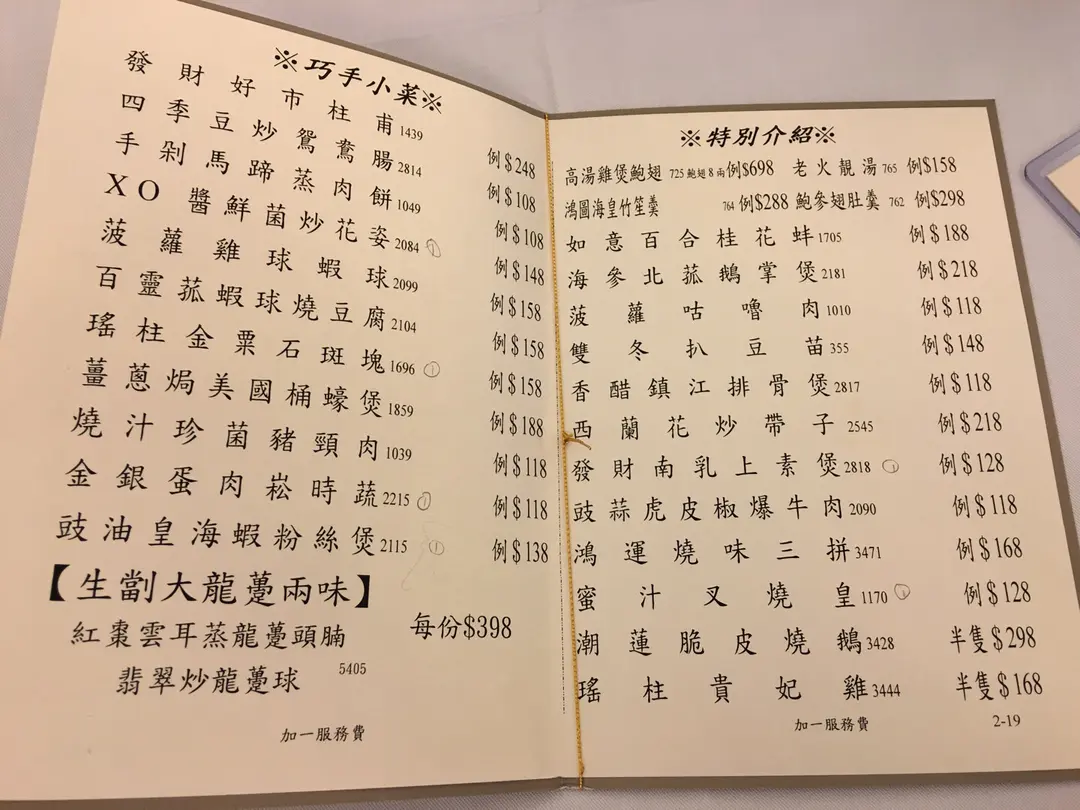 ※巧手小菜※
發財好市柱甫1439 例$248
四季豆炒鴛鴦腸2814 例$108
手剁馬蹄蒸肉餅1049 例$108
XO醬鮮菌炒花姿2084 例$148
菠蘿雞球蝦球2099 例$158
百靈菰蝦球燒豆腐2104 例$158
瑤柱金粟石斑塊1696 例$158
薑蔥焗美國桶蠔煲1859 例$188
燒汁珍菌豬頸肉1039 例$118
金銀蛋肉崧時蔬2215 例$118
豉油皇海蝦粉絲煲2115 例$138
【生劏大龍躉兩味】
紅棗雲耳蒸龍躉頭腩 每份$398
翡翠炒龍躉球 5405
加一服務費
※特別介紹※
高湯雞煲鮑翅 725 鮑翅8兩 例$698 老火靚湯 765 例$158
鴻圖海皇竹笙羹 764 例$288 鮑參翅肚羹 762 例$298
如意百合桂花蚌1705 例$188
海參北菰鵝掌煲2181 例$218
菠蘿咕嚕肉1010 例$118
雙冬扒豆苗355 例$148
香醋鎮江排骨煲2817 例$118
西蘭花炒帶子2545 例$218
發財南乳上素煲2818 例$128
豉蒜虎皮椒爆牛肉2090 例$118
鴻運燒味三拼3471 例$168
蜜汁叉燒皇1170 例$128
潮蓮脆皮燒鵝3428 半隻$298
瑤柱貴妃雞3444 半隻$168
加一服務費 2-19